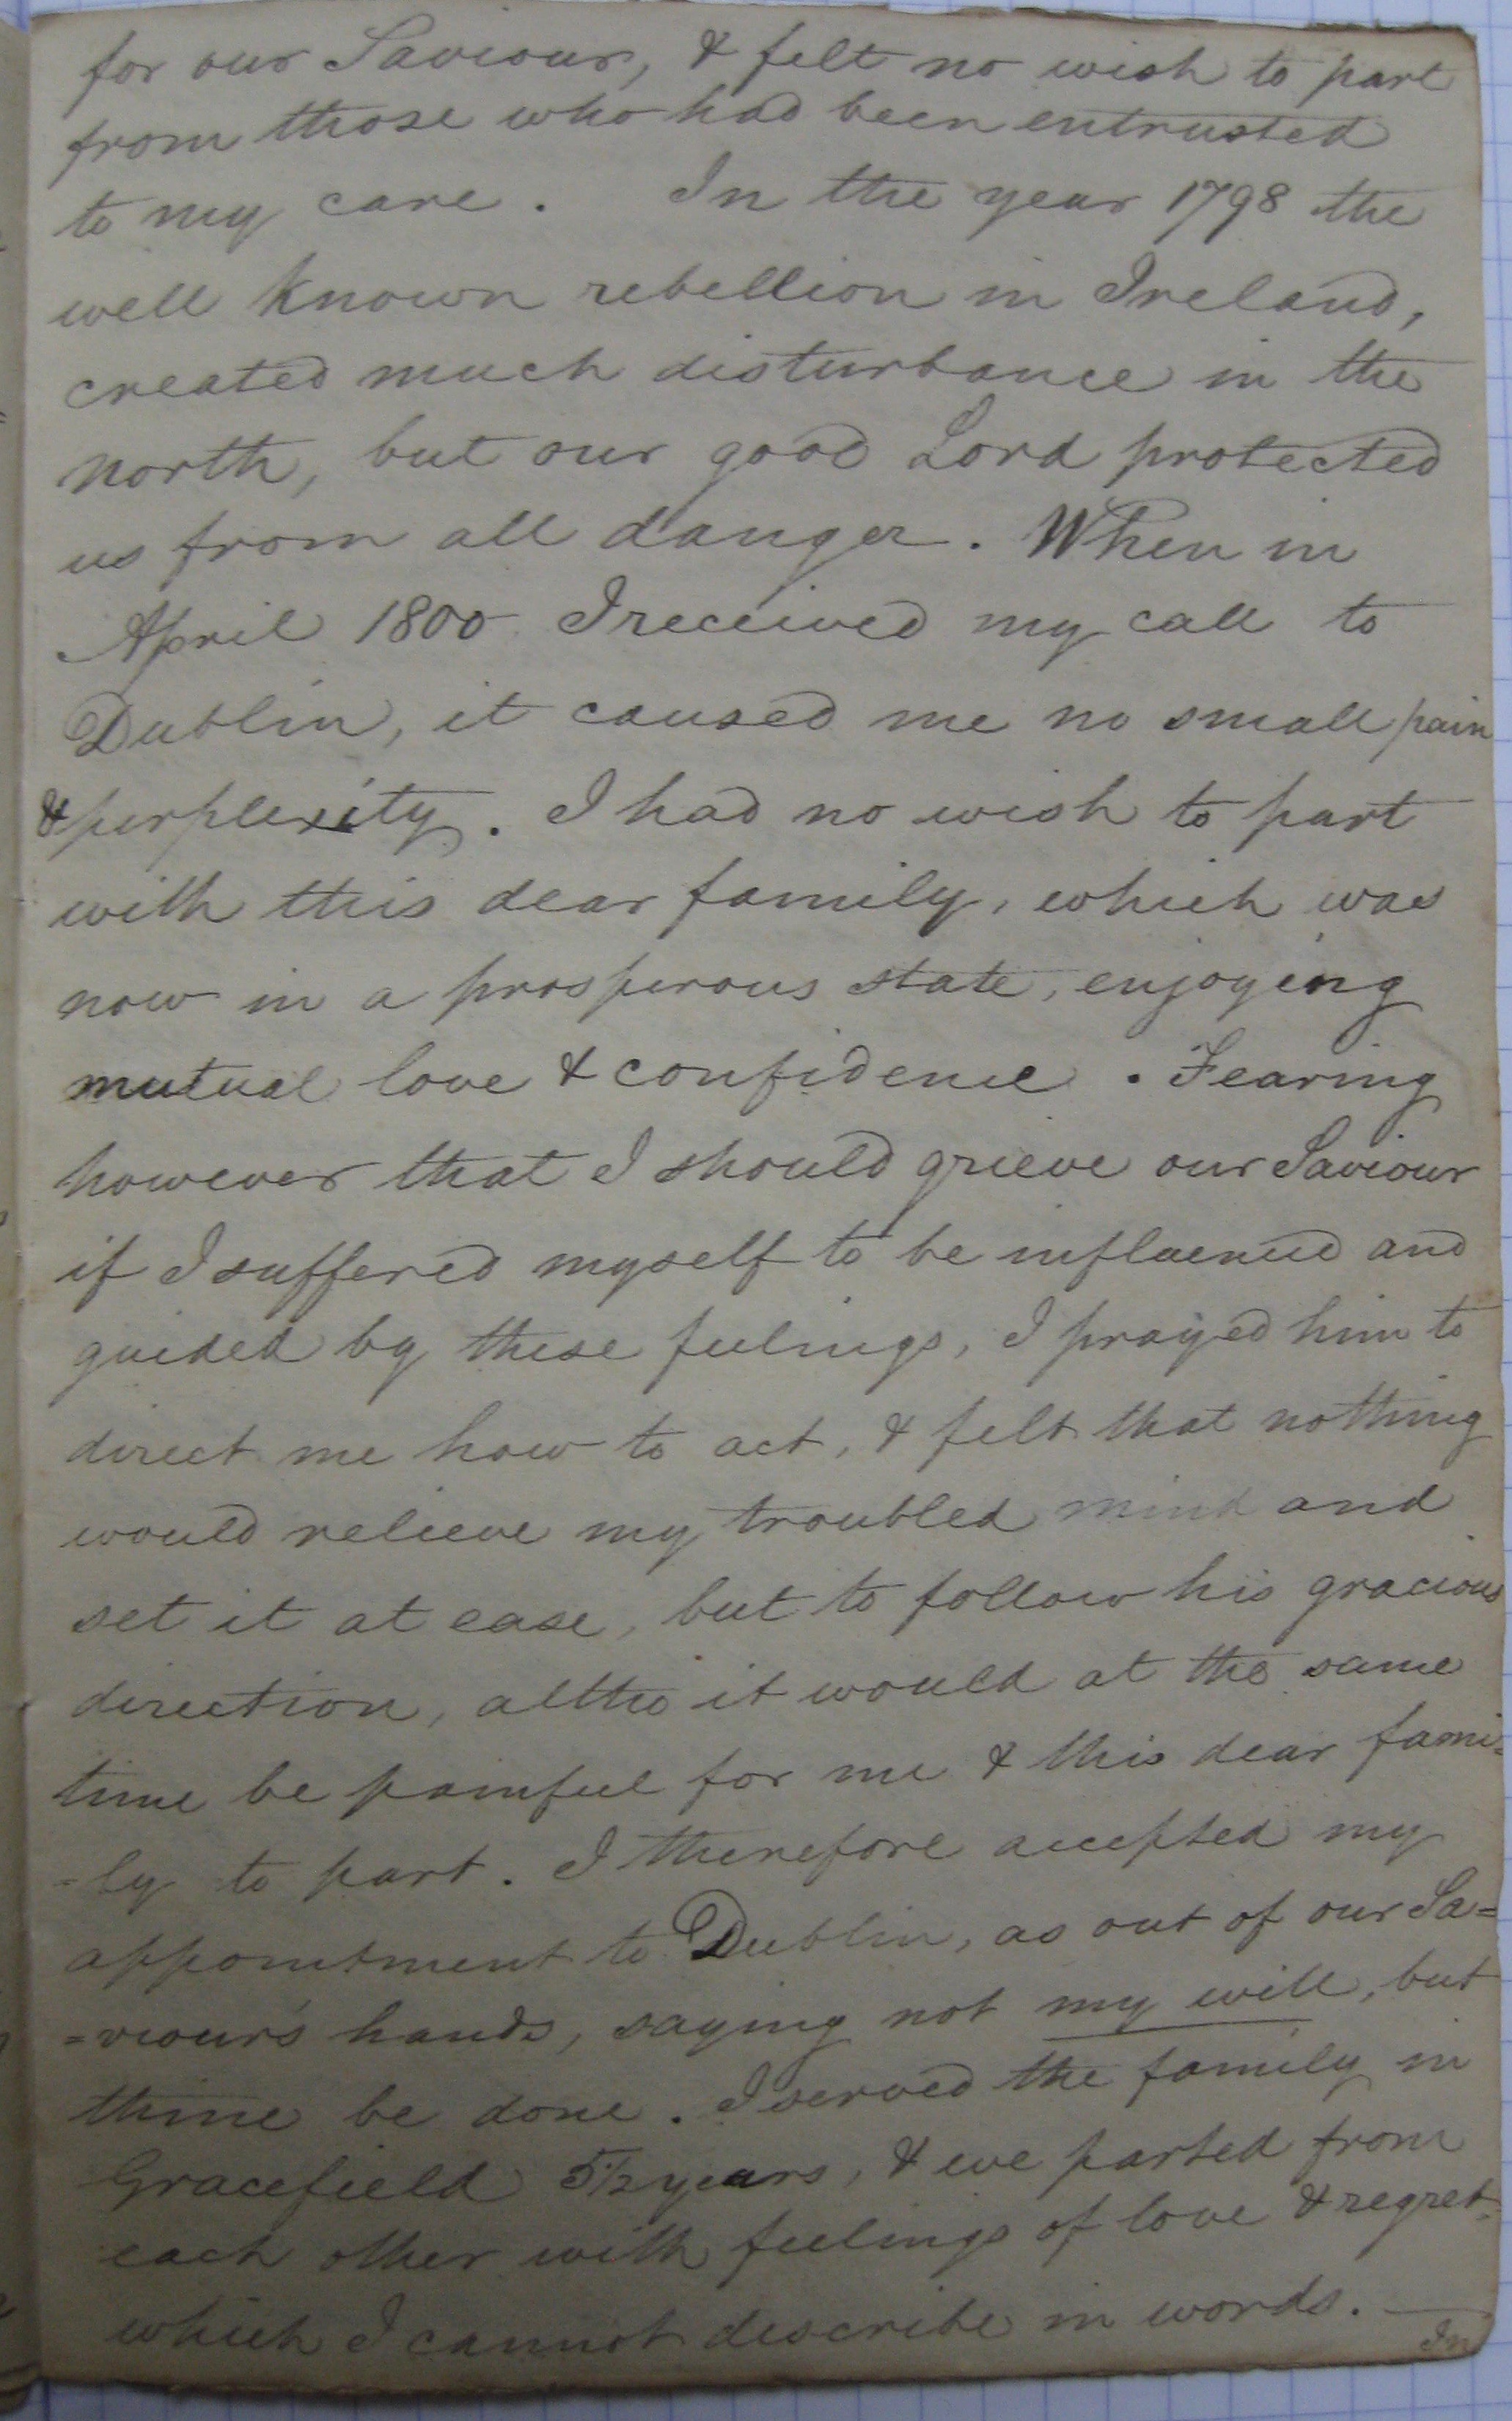 for our Saviour, & felt no wish to part
from those who had been entrusted
to my care. In the year 1798 the
well known rebellion in Ireland,
created much disturbance in the
north, but our good Lord protected
us from all danger. When in
April 1800 I received my call to
Dublin, it caused me no small pain
& perplexity. I had no wish to part
with this dear family, which was
now in a prosperous state, enjoying
mutual love & confidence. Fearing
however that I should grieve our Saviour
if I suffered myself to be influenced and
guided by these feelings, I prayed him to
direct me how to act, & felt that nothing
would relieve my troubled mind and
set it at ease, but to follow his gracious
direction, altho it would at the same
time be painful for me & this dear fami=
=ly to part. I therefore accepted my
appointment to Dublin, as out of our Sa=
=viour's hands, saying not my will, but
thine be done. I served the family in
Gracefield 5 1/2 years, & we parted from
each other with feelings of love & regret
which I cannot describe in words. —
In